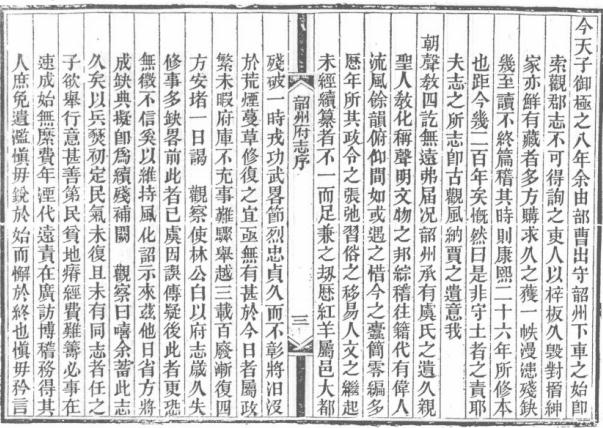 今天子御極之八年余由部曹出守韶州下車之始卽
索觀郡志不可得詢之吏人以梓板久毀對搢紳
家亦鮮有藏者多方購求久之獲一帙漫漶殘缺
幾至讀不終篇稽其時則康熙二十六年所修本
也距今幾二百年矣慨然曰是非守土者之責耶
夫志之所志卽古觀風納賈之遺意我
朝聲敎四訖無遠弗届况韶州承有虞氏之遺久親
聖人敎化稱聲明文物之邦綜稽往籍代有偉人
流風餘韻俯仰間如或遇之惜今之蠹簡零編多
歷年所其政令之張弛習俗之移易人文之繼起
未經續纂者不一而足兼之刼歷紅羊屬邑大都
韶州府志序
三
殘破一時戎功武畧節烈忠貞久而不彰將汨没
於荒煙蔓草修復之宜亟無有甚於今日者屬政
繁未暇府庫不充事難驟舉越三載百廢漸復四
方安堵一日謁 觀察使林公白以府志歲久失
修事多缺畧前此者已虞因誤傳疑後此者更恐
無徵不信奚以維持風化詔示來兹他日省方將
成缺典擬卽爲續殘補闕 觀察曰嘻余蓄此志
久矣以兵燹初定民氣未復且未有同志者任之
子欲舉行意甚善第民貧地瘠經費難籌必事在
速成始無縻費年湮代遠責在廣訪博稽務得其
人庶免遺濫愼毋銳於始而懈於終也愼毋矜言